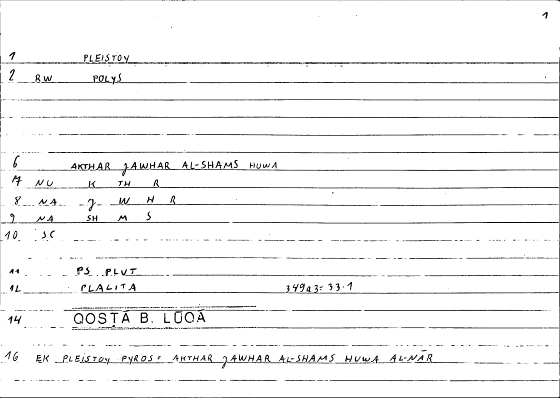 1
1 PLEISTOY
2 RW POLYS
6 AKTHAR JAWHAR AL-SHAMS HUWA
7 NU K TH R
8 NA J W H R
9 NA SH M S
10 SC
11 PS PLUT
12 PLACITA 349a3= 33.1
14 QOSṬĀ B. LŪQĀ
16 EK PLEISTOY PYROS: AKTHAR JAWHAR AL-SHAMS HUWA AL-NĀR